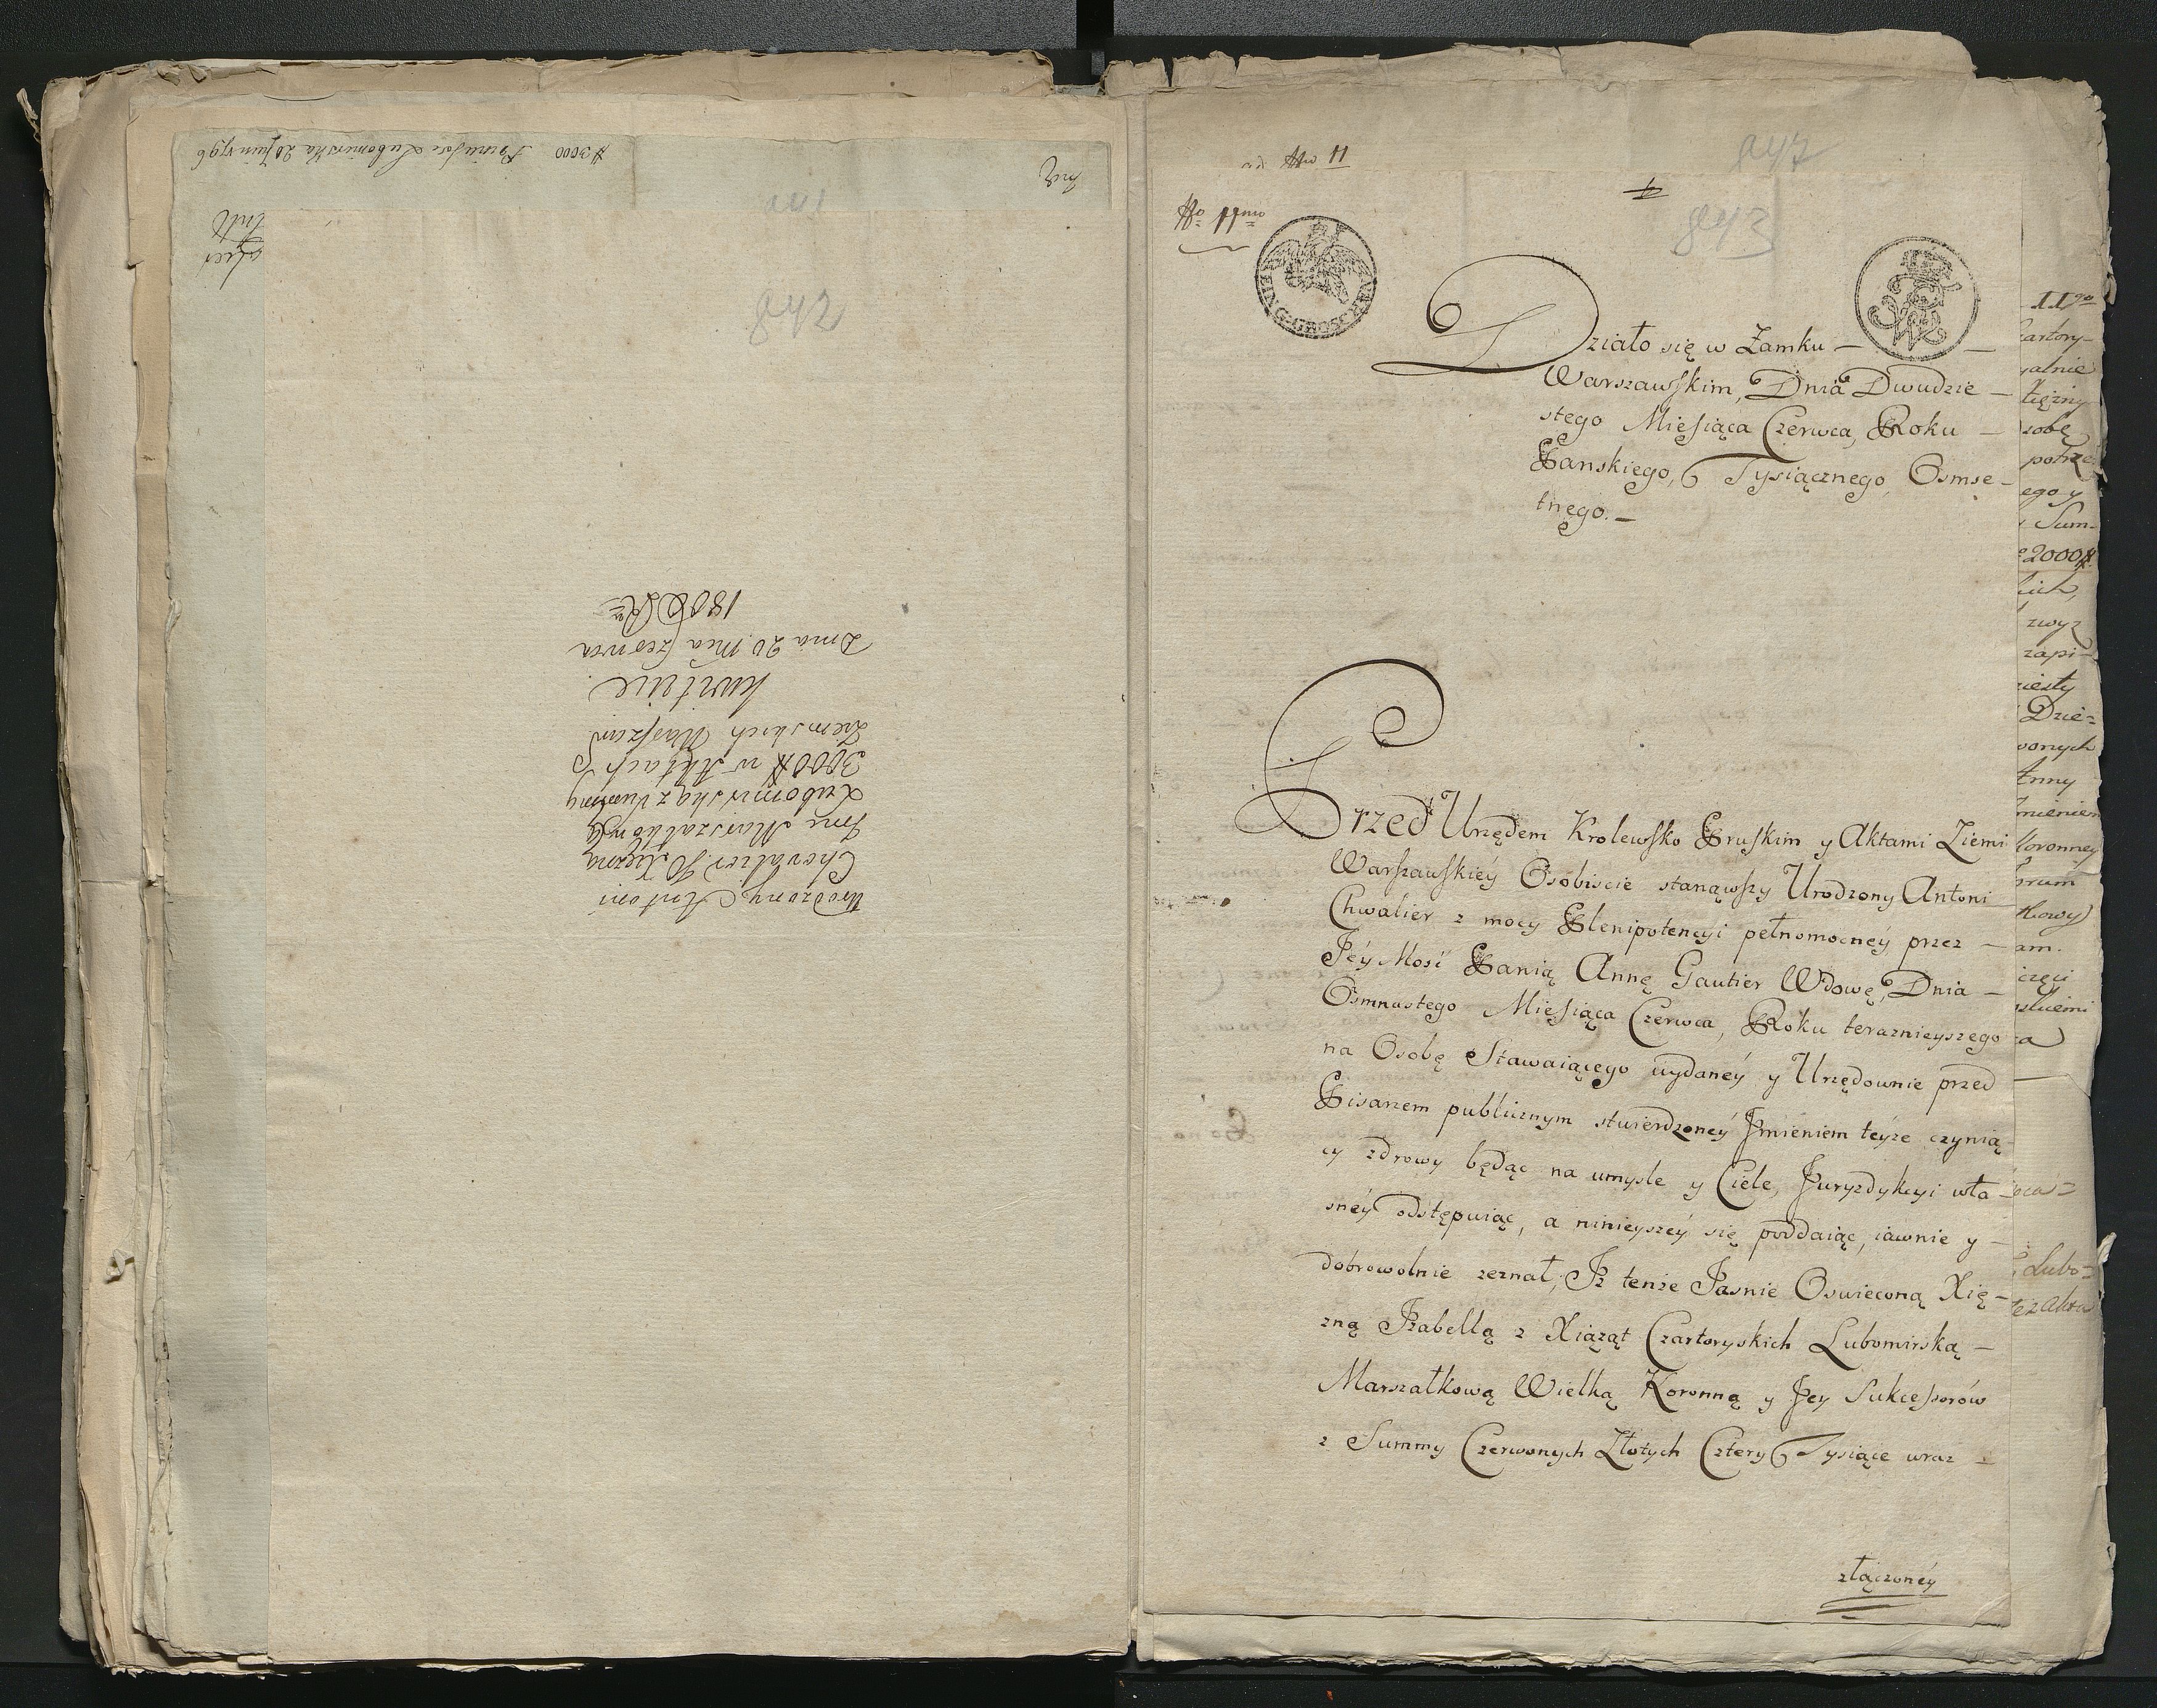 # 3000 Princesse Lubomirska 20 Juin 1796
842
Urodzony Antoni
Chevalier JO Xiężną
Jmę Marszałkową
Lubomirską z Summy
3000 # w Aktach
Ziemskich Warszaw
kwituie.
Dnia 20. Mca Czerwca
1800 Ru
ad Nro 11
847
Nro 11mo
843
Działo się w Zamku —
Warszawskim, Dnia Dwudzie —
stego Miesiąca Czerwca, Roku —
Panskiego, Tysiącznego, Osmse-
tnego. —
Przed Urzędem Krolewsko Pruskim y Aktami Ziemi
Warszawskiey Osobiscie stanąwszy Urodzony Antoni
Chwalier z mocy Plenipotencyi pełnomocney przez —
Jey Mość Panią Annę Gautier Wdowę, Dnia —
Osmnastego Miesiąca Czerwca, Roku teraznieyszego
na Osobę Stawaiącego wydaney y Urzędownie przed
Pisarzem publicznym stwierdzoney Jmieniem teyże czynią
cy zdrowy będąc na umysle y Ciele, Juryzdykcyi wła
sney odstępuiąc, a ninieyszey się poddaiąc, iawnie y —
dobrowolnie zeznał, Jż tenże Jasnie Oswieconą Xię-
żną Jzabellą z Xiążąt Czartoryskich Lubomirską —
Marszałkową Wielką Koronną y Jey Sukcessorów
z Summy Czerwonych Złotych Cztery Tysiące wraz —
złączoney
artory-
alnie
tężny
sobę
potrze
ego y
Sum-
2000 #
zwyz
zapi-
Dzie-
onych
Anny
mieniem
Koronney
orum
tkowy
am.
Lubo-